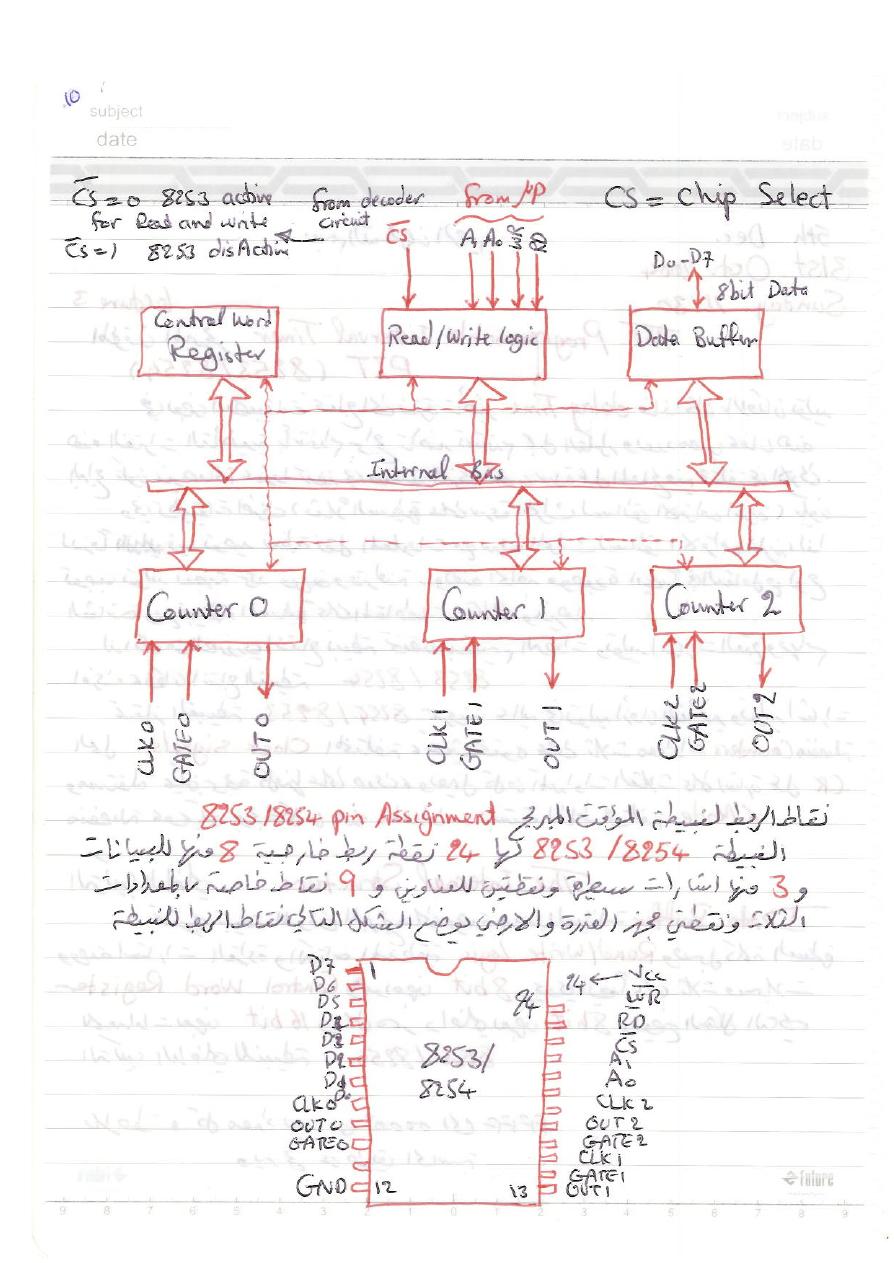 10
subject
date
CS = 0 8253 active
for Read and write
CS = 1 8253 disActive
from decoder
circuit
from μP
CS = Chip Select
CS
A1 A0
D0-D7
8bit Data
Control Word
Register
Read/Write logic
Data Buffer
Internal Bus
Counter 0
Counter 1
Counter 2
CLK0
GATE0
OUT0
CLK1
GATE1
OUT1
CLK2
GATE2
OUT2
نقاط الربط لغبيطة المؤقت المبرمج 8253/8254 pin Assignment
الغبيطة 8253/8254 لها 24 نقطة ربط خارجية 8 منها للبيانات
و 3 منها اشارات سيطرة ونقطتين للعناوين و 9 نقاط خاصة بالعدادات
الثلاث ونقطتي مجهز القدرة والارضي يوضح الشكل التالي نقاط الربط للغبيطة
D7
D6
D5
D4
D3
D2
D1
D0
CLK0
OUT0
GATE0
GND
1
12
8253/
8254
24
13
24 ← Vcc
WR
RD
CS
A1
A0
CLK2
OUT2
GATE2
CLK1
GATE1
OUT1
future
9 8 7 6 5 4 3 2 1 0 1 2 3 4 5 6 7 8 9